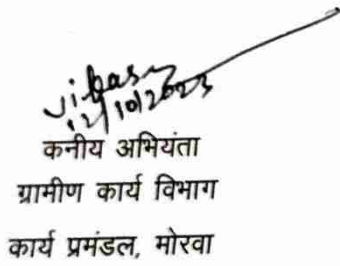 12/10/2023
कनीय अभियंता
ग्रामीण कार्य विभाग
कार्य प्रमंडल, मोरवा